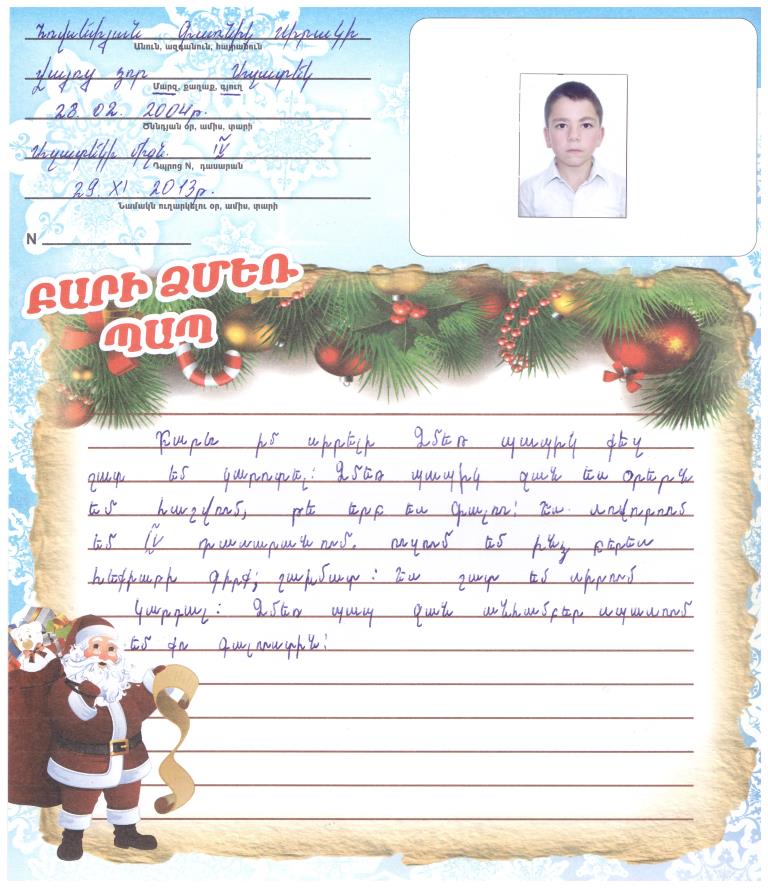 Հովհաննիսյան Գառնիկ Արայակի
Անուն, ազգանուն, հայրանուն
Վայոց ձոր Արատես
Մարզ, քաղաք, գյուղ
28. 02. 2004թ.
Ծննդյան օր, ամիս, տարի
միջն. IV
Դպրոց N, դասարան
29. XI 2013թ.
Նամակն ուղարկելու օր, ամիս, տարի
N
ԲԱՐԻ ՁՄԵՌ
ՊԱՊ
Բարև իմ սիրելի Ձմեռ պապիկ քեզ
շատ եմ կարոտել: Ձմեռ պապիկ ջան ես օրերն
եմ հաշվում, թե երբ ես գալու: Ես սովորում
եմ IV դասարանում. ուզում եմ ինձ բերես
հեքիաթի գիրք, շախմատ: Ես շատ եմ սիրում
կարդալ: Ձմեռ պապ ջան անհամբեր սպասում
եմ քո գալուստին: